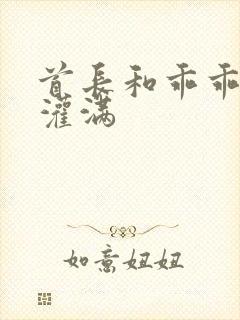 首长和乖乖
灌满
如意妞妞